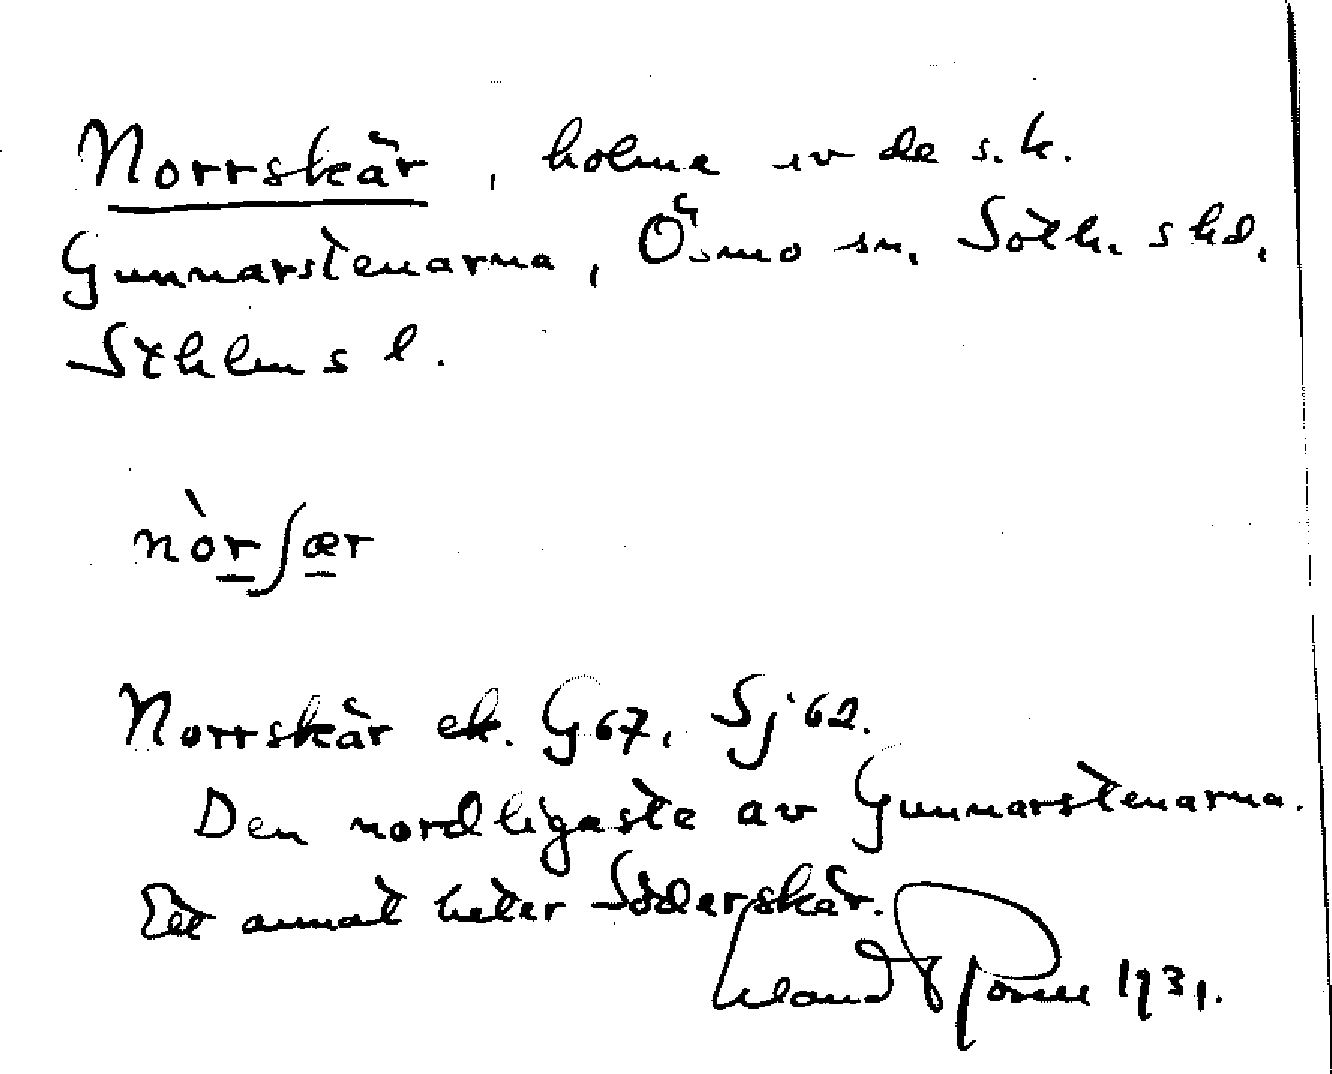 Norrskär, holme av de s.k.
Gunnarstenarna, Ösmo sn, Soth. skd,
Sthlms l.
nòrʃær
Norrskär ek. G 67, Sj 62.
Den nordligaste av Gunnarstenarna.
Ett annat heter Söderskär.
1931.